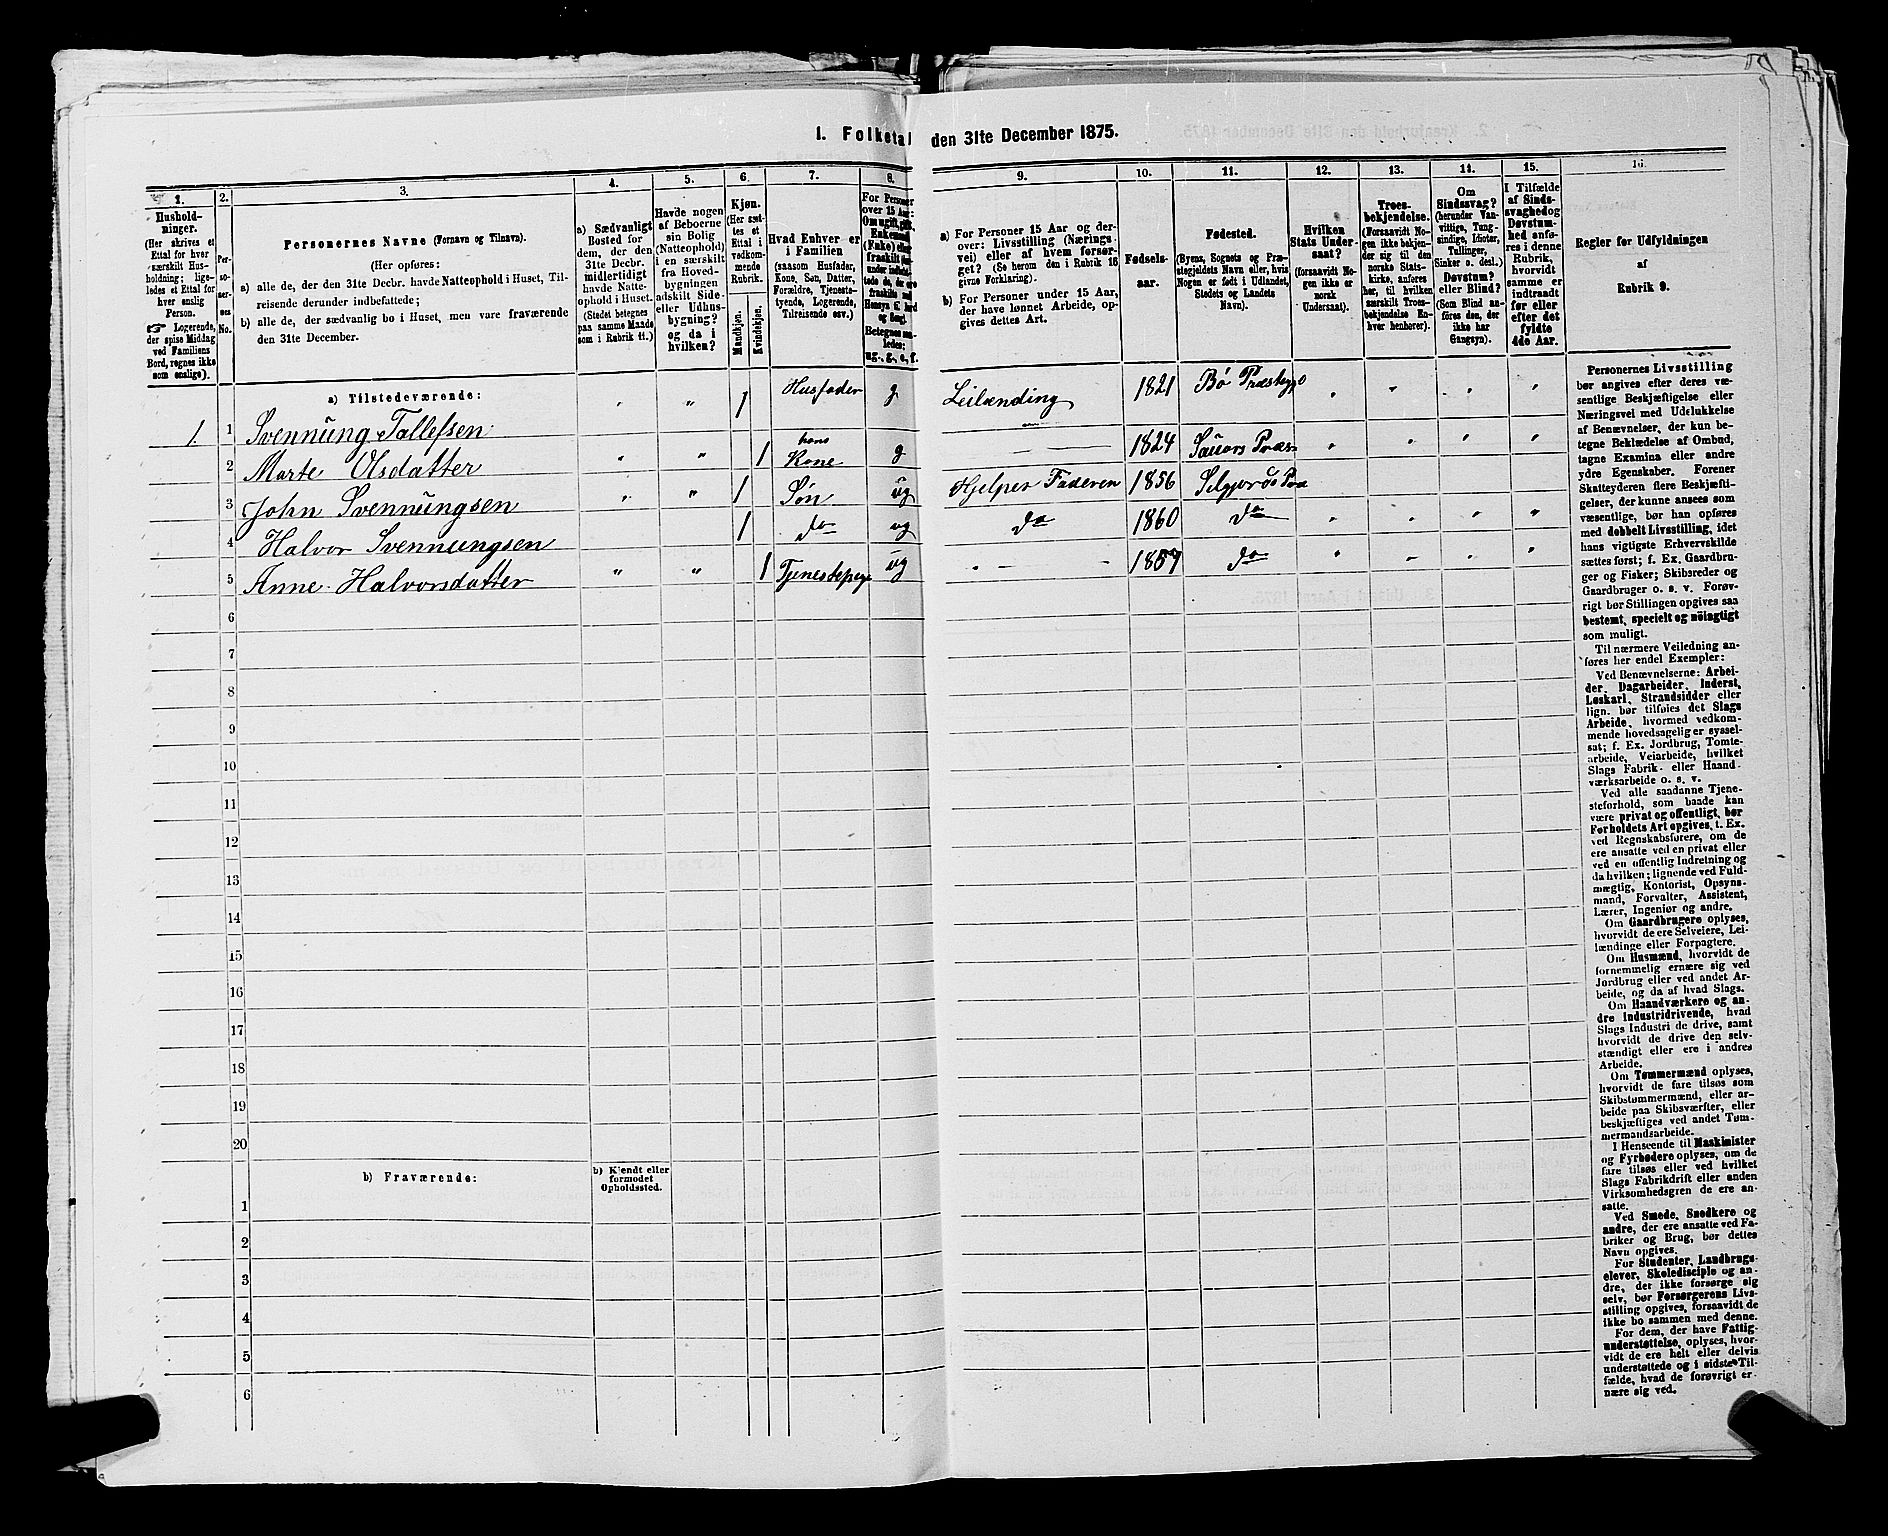 1. Folketal den 31te December 1875.
1.
Hushold-
ninger.
(Her skrives et
Ettal for hver
særskilt Hus-
holdning; lige-
ledes et Ettal for
hver enslig
Person.
☞ Logerende,
der spise Middag
ved Familiens
Bord, regnes ikke
som enslige).
2.
Per-
so-
ner-
nes
No.
3.
Personernes Navne (Fornavn og Tilnavn).
(Her opføres:
a) alle de, der den 31te Decbr. havde Natteophold i Huset, Til-
reisende derunder indbefattede;
b) alle de, der sædvanlig bo i Huset, men vare fraværende
den 31te December.
4.
a) Sædvanligt
Bosted for
dem, der den
31te Decbr.
midlertidigt
havde Natte-
ophold i Huset.
(Stedet betegnes
paa samme Maade
som i Rubrik 11.)
5.
Havde nogen
af Beboerne
sin Bolig
(Natteophold)
i en særskilt
fra Hoved-
bygningen
adskilt Side-
eller Udhus-
bygning? og
og da i
hvilken?
6.
Kjøn.
(Her sæt-
tes et
Ettal i
vedkom-
mende
Rubrik.
Mandkjøn.
Kvindekjøn.
7.
Hvad Enhver er
i Familien
(saasom Husfader,
Kone, Søn, Datter,
Forældre, Tjeneste-
tyende, Logerende,
Tilreisende osv.)
8.
For Personer
over 15 Aar:
Om ugift, gift,
Enkemand
(Enke) eller
fraskilt
Betegnes saa-
ledes:
ug., g., e., f.
9.
a) For Personer 15 Aar og der-
over: Livsstilling (Nærings-
vei) eller af hvem forsør-
get? (Se herom den i Rubrik 16
givne Forklaring).
b) For Personer under 15 Aar,
der have lønnet Arbeide, op-
gives dettes Art.
10.
Fødsels-
aar.
11.
Fødested.
(Byens, Sognets og Præ-
stegjeldets Navn eller, hvis
Nogen er født i Udlandet,
Stedets og Landets
Navn).
12.
Hvilken
Stats Under-
saat?
(forsaavidt No-
gen ikke er
norsk
Undersaat).
13.
Troes-
bekjendelse.
(Forsaavidt No-
gen ikke bekjen-
der sig til den
norske Stats-
kirke, anføres
her, til hvilken
særskilt Troes-
bekjendelse En-
hver henhører).
14.
Om
Sindssvag?
(herunder Van-
vittige, Tung-
sindige, Idioter,
Tullinger,
Sinker o. desl.)
Døvstum?
eller Blind?
(Som Blind an-
føres den, der
ikke har
Gangsyn).
15.
I Tilfælde
af Sinds-
svaghed og
Døvstum-
hed anfø-
res i denne
Rubrik,
hvorvidt
samme er
indtraadt
før eller
efter det
fyldte
4de Aar.
16.
Regler for Udfyldningen
af
Rubrik 9.
a) Tilstedeværende:
1. 1 Svennung Tallefsen " " 1 Husfader g Leilænding 1821 Bø
2 Marte Olsdatter " " 1 hans Kone g — 1824 Sauors Præs
3 John Svennungsen " " 1 Søn ug Hjelper Faderen 1856 Selgjords Præ
4 Halvor Svennungsen 1 do ug do 1860 do
5 Anne Halvorsdatter " " 1 Tjenestepige ug " — 1857 do
6
7
8
9
10
11
12
13
14
15
16
17
18
19
20
b) Fraværende:
b) Kjendt eller
formodet
Opholdssted.
1
2
3
4
5
6
Personernes Livsstilling
bør angives efter deres væ-
sentlige Beskjæftigelse eller
Næringsvei med Udelukkelse
af Benævnelser, der kun be-
tegne Beklædelse af Ombud,
tagne Examina eller andre
ydre Egenskaber. Forener
Skatteyderen flere Beskjæfti-
gelser, der kunne ansees som
væsentlige, bør han opføres
med dobbelt Livsstilling, idet
hans vigtigste Erhvervskilde
sættes først; f. Ex. Gaardbru-
ger og Fisker; Skibsreder og
Gaardbruger o. s. v. Forøv-
rigt bør Stillingen opgives saa
bestemt, specielt og nöiagtigt
som muligt.
Til nærmere Veiledning an-
føres her endel Exempler:
Ved Benævnelserne: Arbei-
der, Dagarbeider, Inderst,
Løskarl, Strandsidder eller
lign. bør tilføies det Slags
Arbeide, hvormed vedkom-
mende hovedsagelig er syssel-
sat; f. Ex. Jordbrug, Tomte-
arbeide, Veiarbeide, hvilket
Slags Fabrik- eller Haand-
værksarbeide o. s. v.
Ved alle saadanne Tjene-
steforhold, som baade kan
være privat og offentligt, bør
Forholdets Art opgives, f. Ex.
ved Regnskabsførere, om de
ere ansatte ved en privat eller
ved en offentlig Indretning og
da hvilken; lignende ved Fuld-
mægtig, Kontorist, Opsyns-
mand, Forvalter, Assistent,
Lærer, Ingeniør og andre.
Om Gaardbrugere oplyses,
hvorvidt de ere Selveiere, Lei-
lændinge eller Forpagtere.
Om Husmænd, hvorvidt de
fornemmelig ernære sig ved
Jordbrug eller ved andet Ar-
beide, og da af hvad Slags.
Om Haandværkere og an-
dre Industridrivende, hvad
Slags Industri de drive, samt
hvorvidt de drive den selv-
stændigt eller ere i andres
Arbeide.
Om Tømmermænd oplyses,
hvorvidt de fare tilsøs som
Skibstømmermænd, eller ar-
beide paa Skibsværfter, eller
beskjæftiges ved andet Tøm-
mermandsarbeide.
I Henseende til Maskinister
og Fyrbødere oplyses, om de
fare tilsøs eller ved hvilket
Slags Fabrikdrift eller anden
Virksomhedsgren de ere an-
satte.
Ved Smede, Snedkere og
andre, der ere ansatte ved Fa-
briker og Brug, bør dettes
Navn opgives.
For Studenter, Landbrugs-
elever, Skoledisciple og an-
dre, der ikke forsørge sig
selv, bør Forsørgerens Livs-
stilling opgives, forsaavidt de
ikke bo sammen med denne.
For dem, der have Fattig-
understøttelse, oplyses, hvor-
vidt de ere helt eller delvis
understøttede og i sidste Til-
fælde, hvad de forøvrigt er-
nære sig ved.